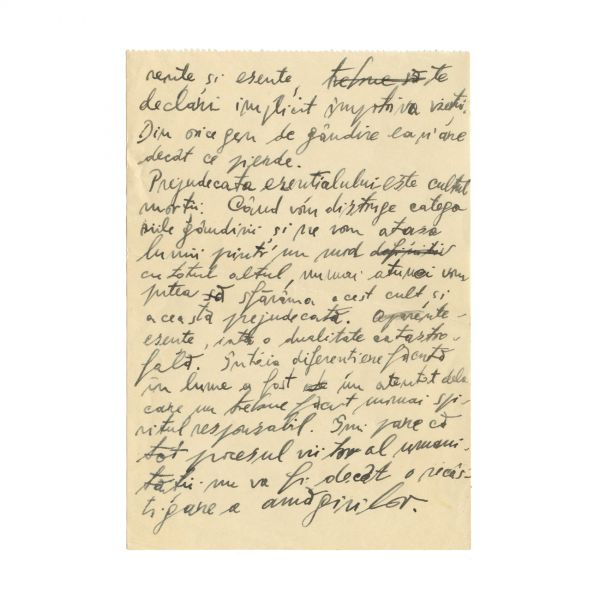 rente și esențe, trebue să te
declări implicit împotriva vieții.
Din orice gen de gândire ea n'are
decât ce pierde.
Prejudecata esențialului este cultul
morții. Când vom distruge catego
riile gândirii și ne vom atașa
lumii printr'un mod definitiv
cu totul altul, numai atunci vom
putea să sfărâma acest cult și
această prejudecată. Aparențe-
esențe, iată o dualitate catastro-
fală. Întâia diferențiere făcută
în lume a fost un atentat dela
care un trebue făcut numai spi-
ritul responsabil. Îmi pare că
tot procesul viitor al umani-
tății nu va fi decât o recâș-
tigare a amăgirilor.